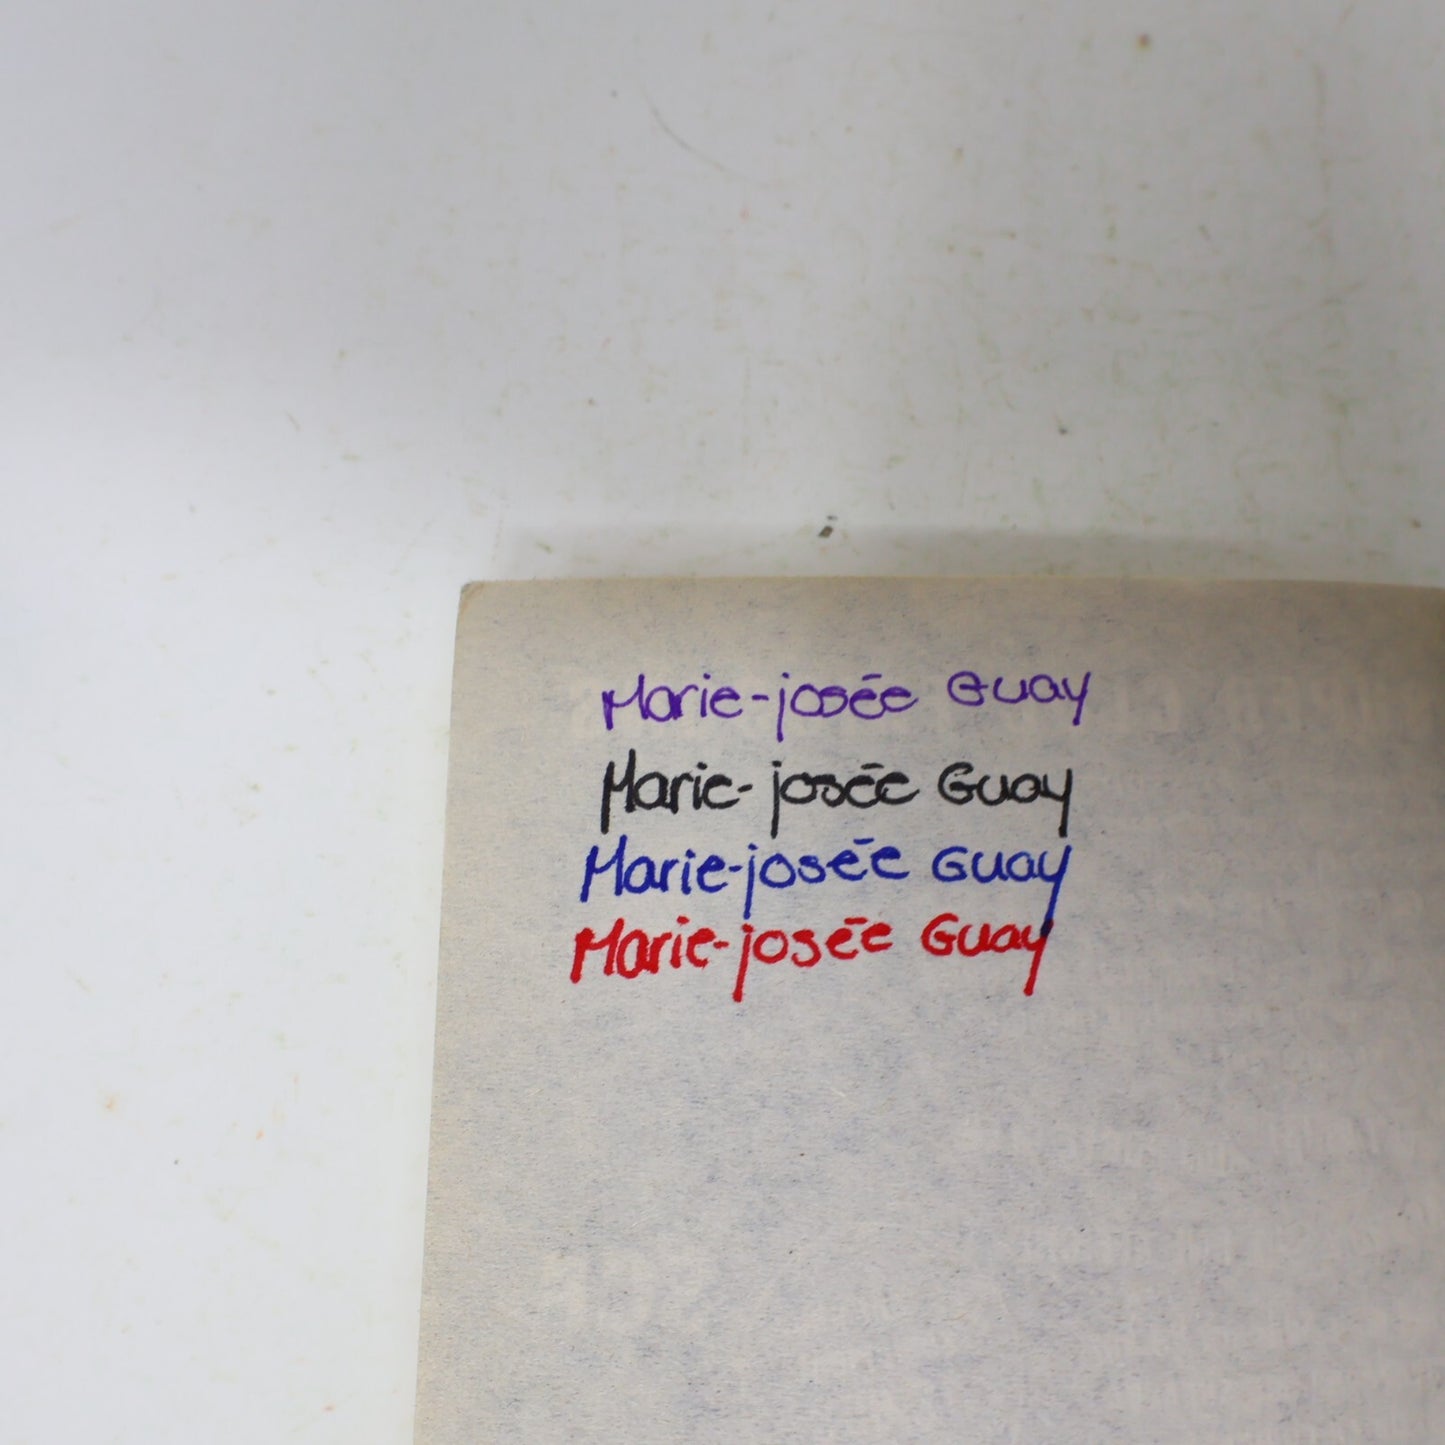 Marie-josée Guay
Marie-josée Guay
Marie-josée Guay
Marie-josée Guay